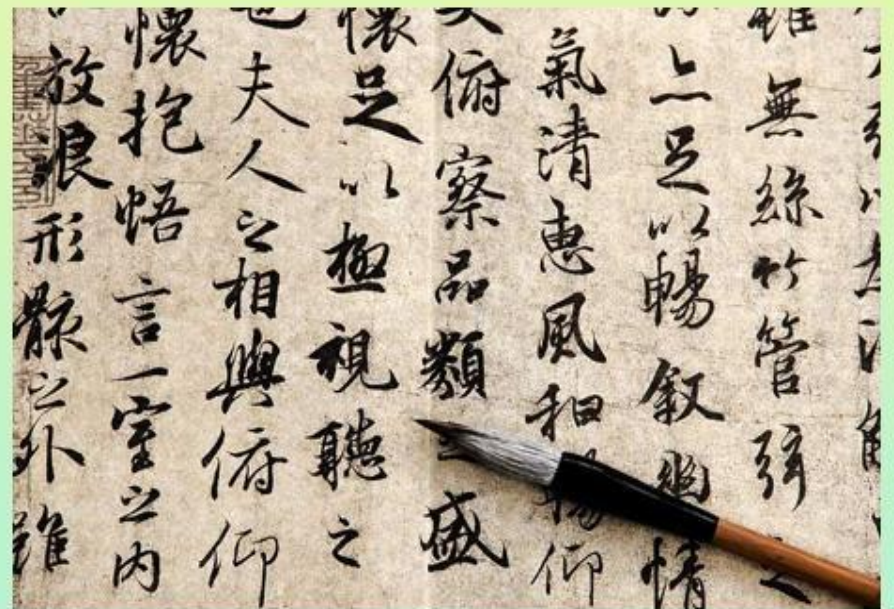 雖無絲竹管弦之
亦足以暢叙幽情
氣清惠風和暢仰
俯察品類之盛
懷足以極視聽之
也夫人之相與俯仰
懷抱悟言一室之内
放浪形骸之外雖